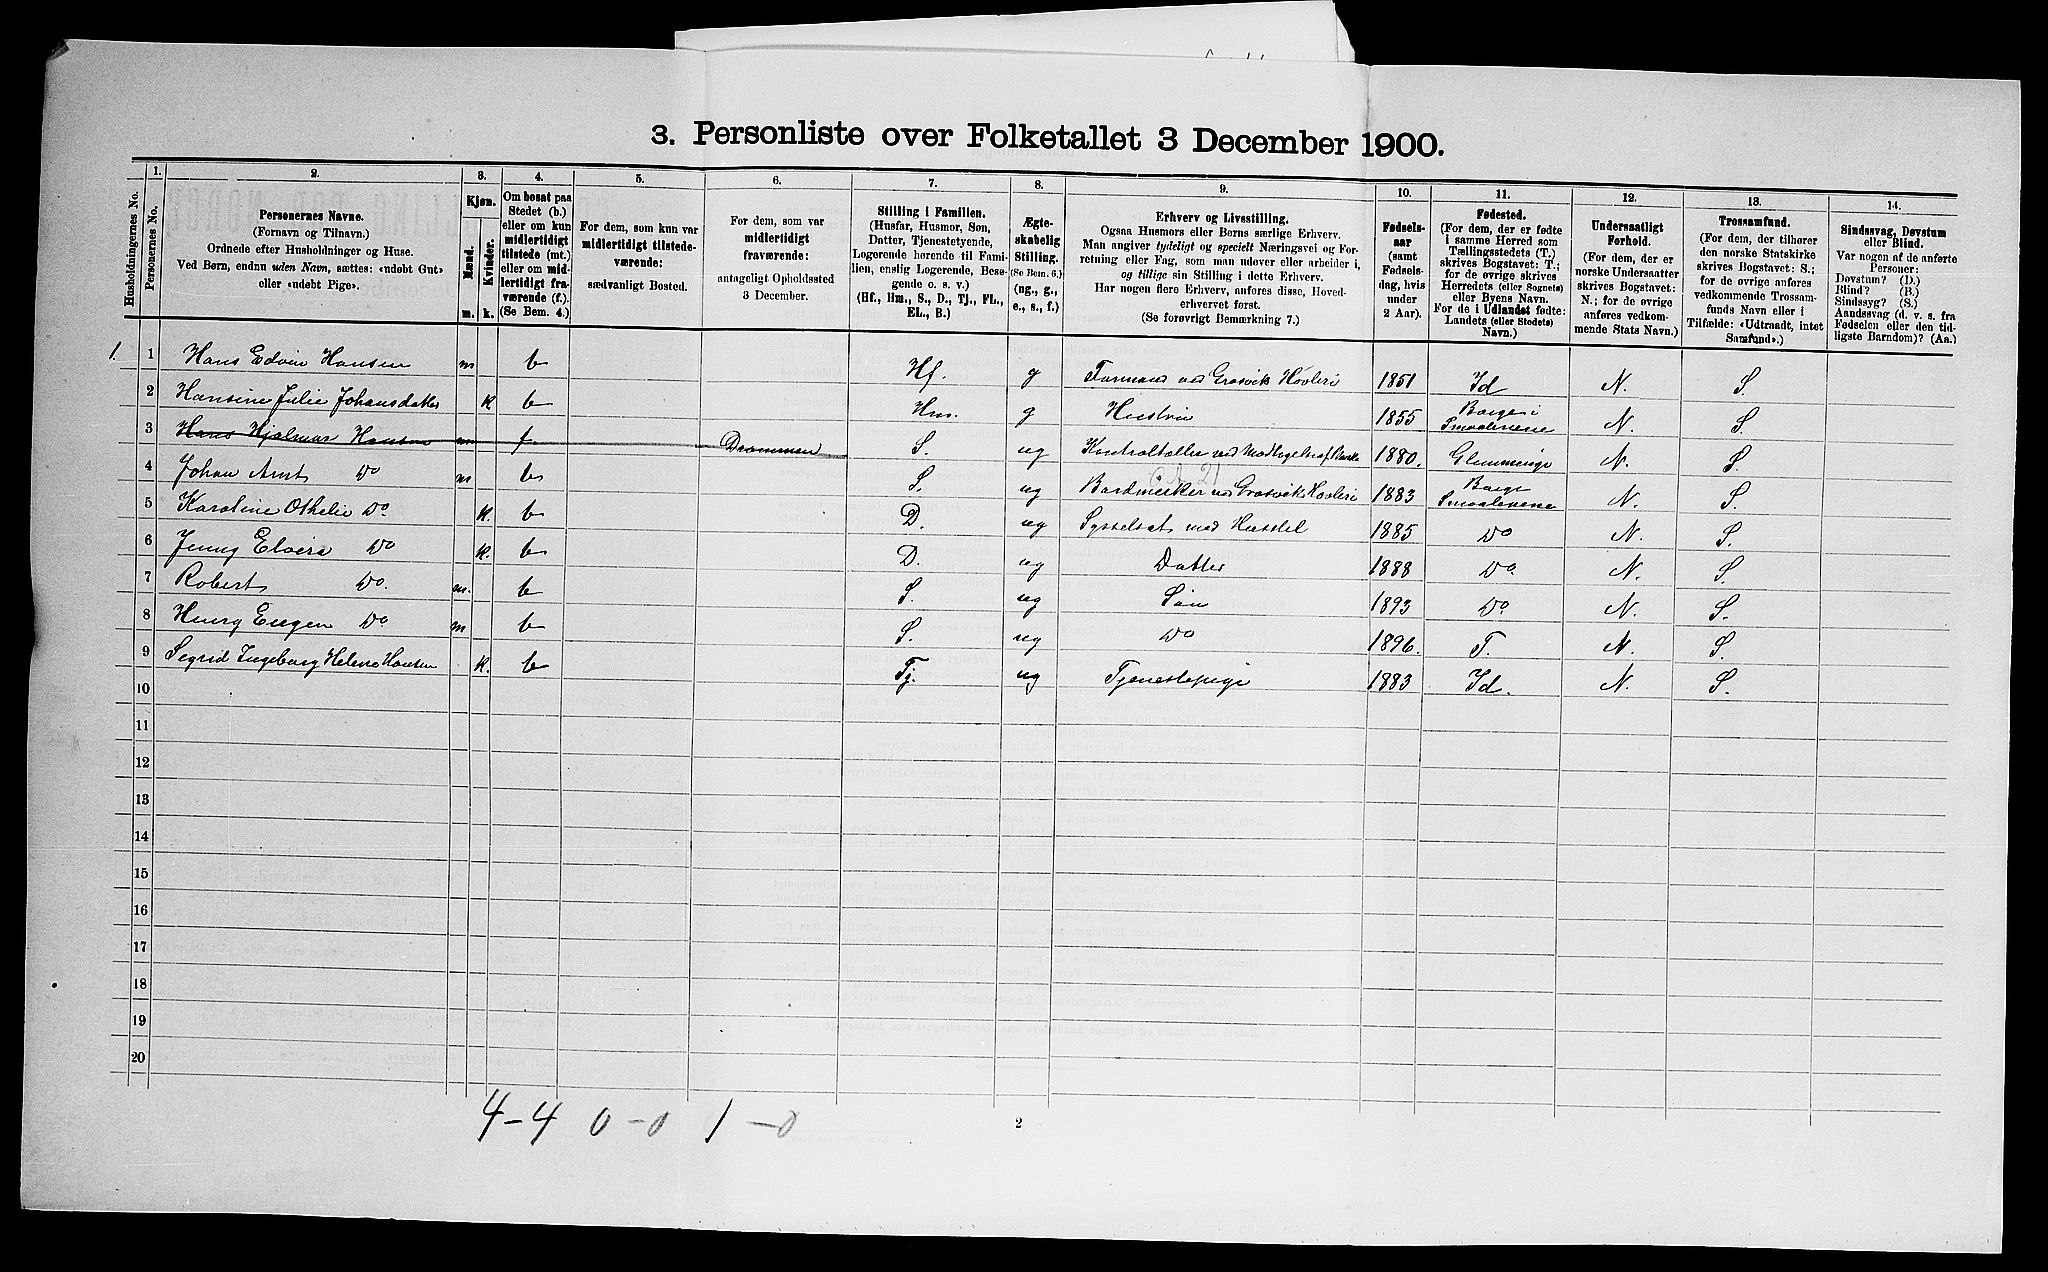 3. Personliste over Folketallet 3 December 1900.
Husholdningernes No.
1. Personernes No.
2. Personernes Navne.
(Fornavn og Tilnavn.)
Ordnede efter Husholdninger og Huse.
Ved Børn, endnu uden Navn, sættes: «udøbt Gut»
eller «udøbt Pige».
3. Kjøn.
Mænd. Kvinder.
m. k.
4. Om bosat paa
Stedet (b.)
eller om kun
midlertidigt
tilstede (mt.)
eller om mid-
lertidigt fra-
værende (f.).
(Se Bem. 4.)
5. For dem, som kun var
midlertidigt tilstede-
værende:
sædvanligt Bosted.
6. For dem, som var
midlertidigt
fraværende:
antageligt Opholdssted
3 December.
7. Stilling i Familien.
(Husfar, Husmor, Søn,
Datter, Tjenestetyende,
Logerende hørende til Fami-
lien, enslig Logerende, Besø-
gende o. s. v.)
(Hf., Hm., S., D., Tj., FL.,
EL., B.)
8. Ægte-
skabelig
Stilling.
(Se Bem. 6.)
(ug., g.,
e., s., f.)
9. Erhverv og Livsstilling.
Ogsaa Husmors eller Børns særlige Erhverv.
Man angiver tydeligt og specielt Næringsvei og For-
retning eller Fag, som man udøver eller arbeider i,
og tillige sin Stilling i dette Erhverv.
Har nogen flere Erhverv, anføres disse, Hoved-
erhvervet først.
(Se forøvrigt Bemærkning 7.)
10. Fødsels-
aar
(samt
Fødsels-
dag, hvis
under
2 Aar).
11. Fødested.
(For dem, der er fødte
i samme Herred som
Tællingsstedets (T.)
skrives Bogstavet: T.;
for de øvrige skrives
Herredets (eller Sognets)
eller Byens Navn.
For de i Udlandet fødte:
Landets (eller Stedets)
Navn.)
12. Undersaatligt
Forhold.
(For dem, der er
norske Undersaatter
skrives Bogstavet:
N.; for de øvrige
anføres vedkom-
mende Stats Navn.)
13. Trossamfund.
(For dem, der tilhører
den norske Statskirke
skrives Bogstavet: S.;
for de øvrige anføres
vedkommende Trossam-
funds Navn eller i
Tilfælde: «Udtraadt, intet
Samfund».)
14. Sindssvag, Døvstum
eller Blind.
Var nogen af de anførte
Personer:
Døvstum? (D.)
Blind? (B.)
Sindssyg? (S.)
Aandssvag (d. v. s. fra
Fødselen eller den tid-
ligste Barndom)? (Aa.)
1. 1 Hans Edvin Hansen m b Hf. g Formand ved Grosvik Høvleri 1851 Id N. S.
2 Hansine Julie Johansdatter k b Hm. g Hustru 1855 Borge i Smaalenene N. S.
3 Hans Hjalmar Hansen m f Drammen S. ug 1880. Glemminge N. S.
4 Johan Arnt Do m b S. ug Bordmerker ved Grosvik Høvleri 1883 Borge Smaalenene N. S.
5 Karoline Othelie Do. k. b D. ug Sysselsat med Husstel 1885 Do N. S.
6 Jenny Elvira Do k. b D. ug Datter 1888 Do. N. S.
7 Robert Do. m. b S. ug Søn 1893 Do. N. S.
8 Henry Eugen Do m b S. ug Do 1896. T. N. S.
9 Sigrid Ingeborg Helene Hansen k. b Tj. ug Tjenestepige 1883 Id. N. S.
10
11
12
13
14
15
16
17
18
19
20
4-4 0-0 1-0
2